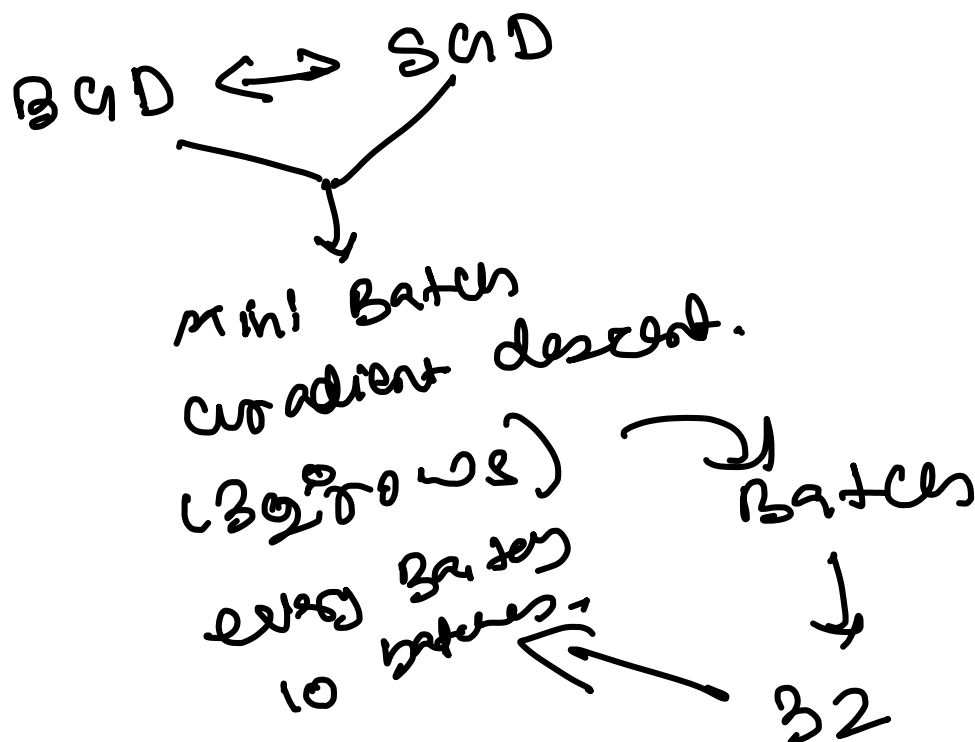 BGD ⟷ SGD
Mini Batch
Gradient descent.
(320 rows)
Batch
every Batch
10 batches.
32